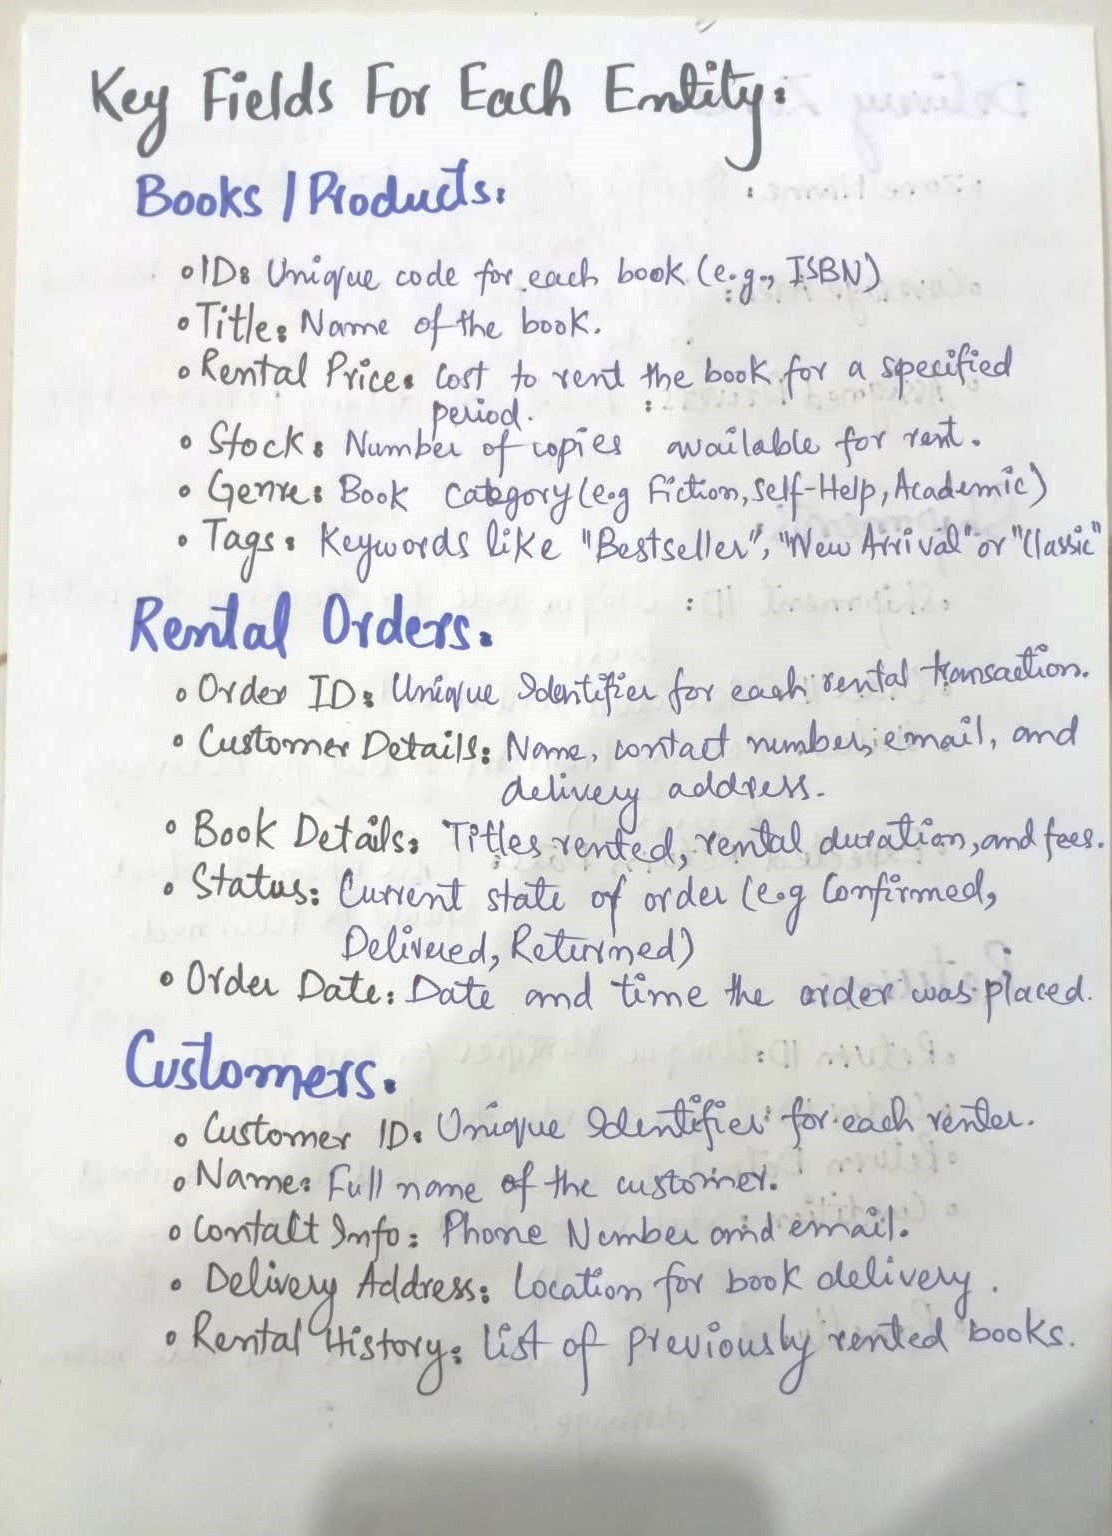 Key Fields For Each Entity:
Books / Products:
• ID: Unique code for each book (e.g., ISBN)
• Title: Name of the book.
• Rental Price: Cost to rent the book for a specified
period.
• Stock: Number of copies available for rent.
• Genre: Book Category (e.g Fiction, Self-Help, Academic)
• Tags: Keywords like "Bestseller", "New Arrival" or "Classic"
Rental Orders:
• Order ID: Unique Identifier for each rental transaction.
• Customer Details: Name, contact number, email, and
delivery address.
• Book Details: Titles rented, rental duration, and fees.
• Status: Current state of order (e.g Confirmed,
Delivered, Returned)
• Order Date: Date and time the order was placed.
Customers:
• Customer ID: Unique Identifier for each renter.
• Name: Full name of the customer.
• Contact Info: Phone Number and email.
• Delivery Address: Location for book delivery.
• Rental History: List of previously rented books.